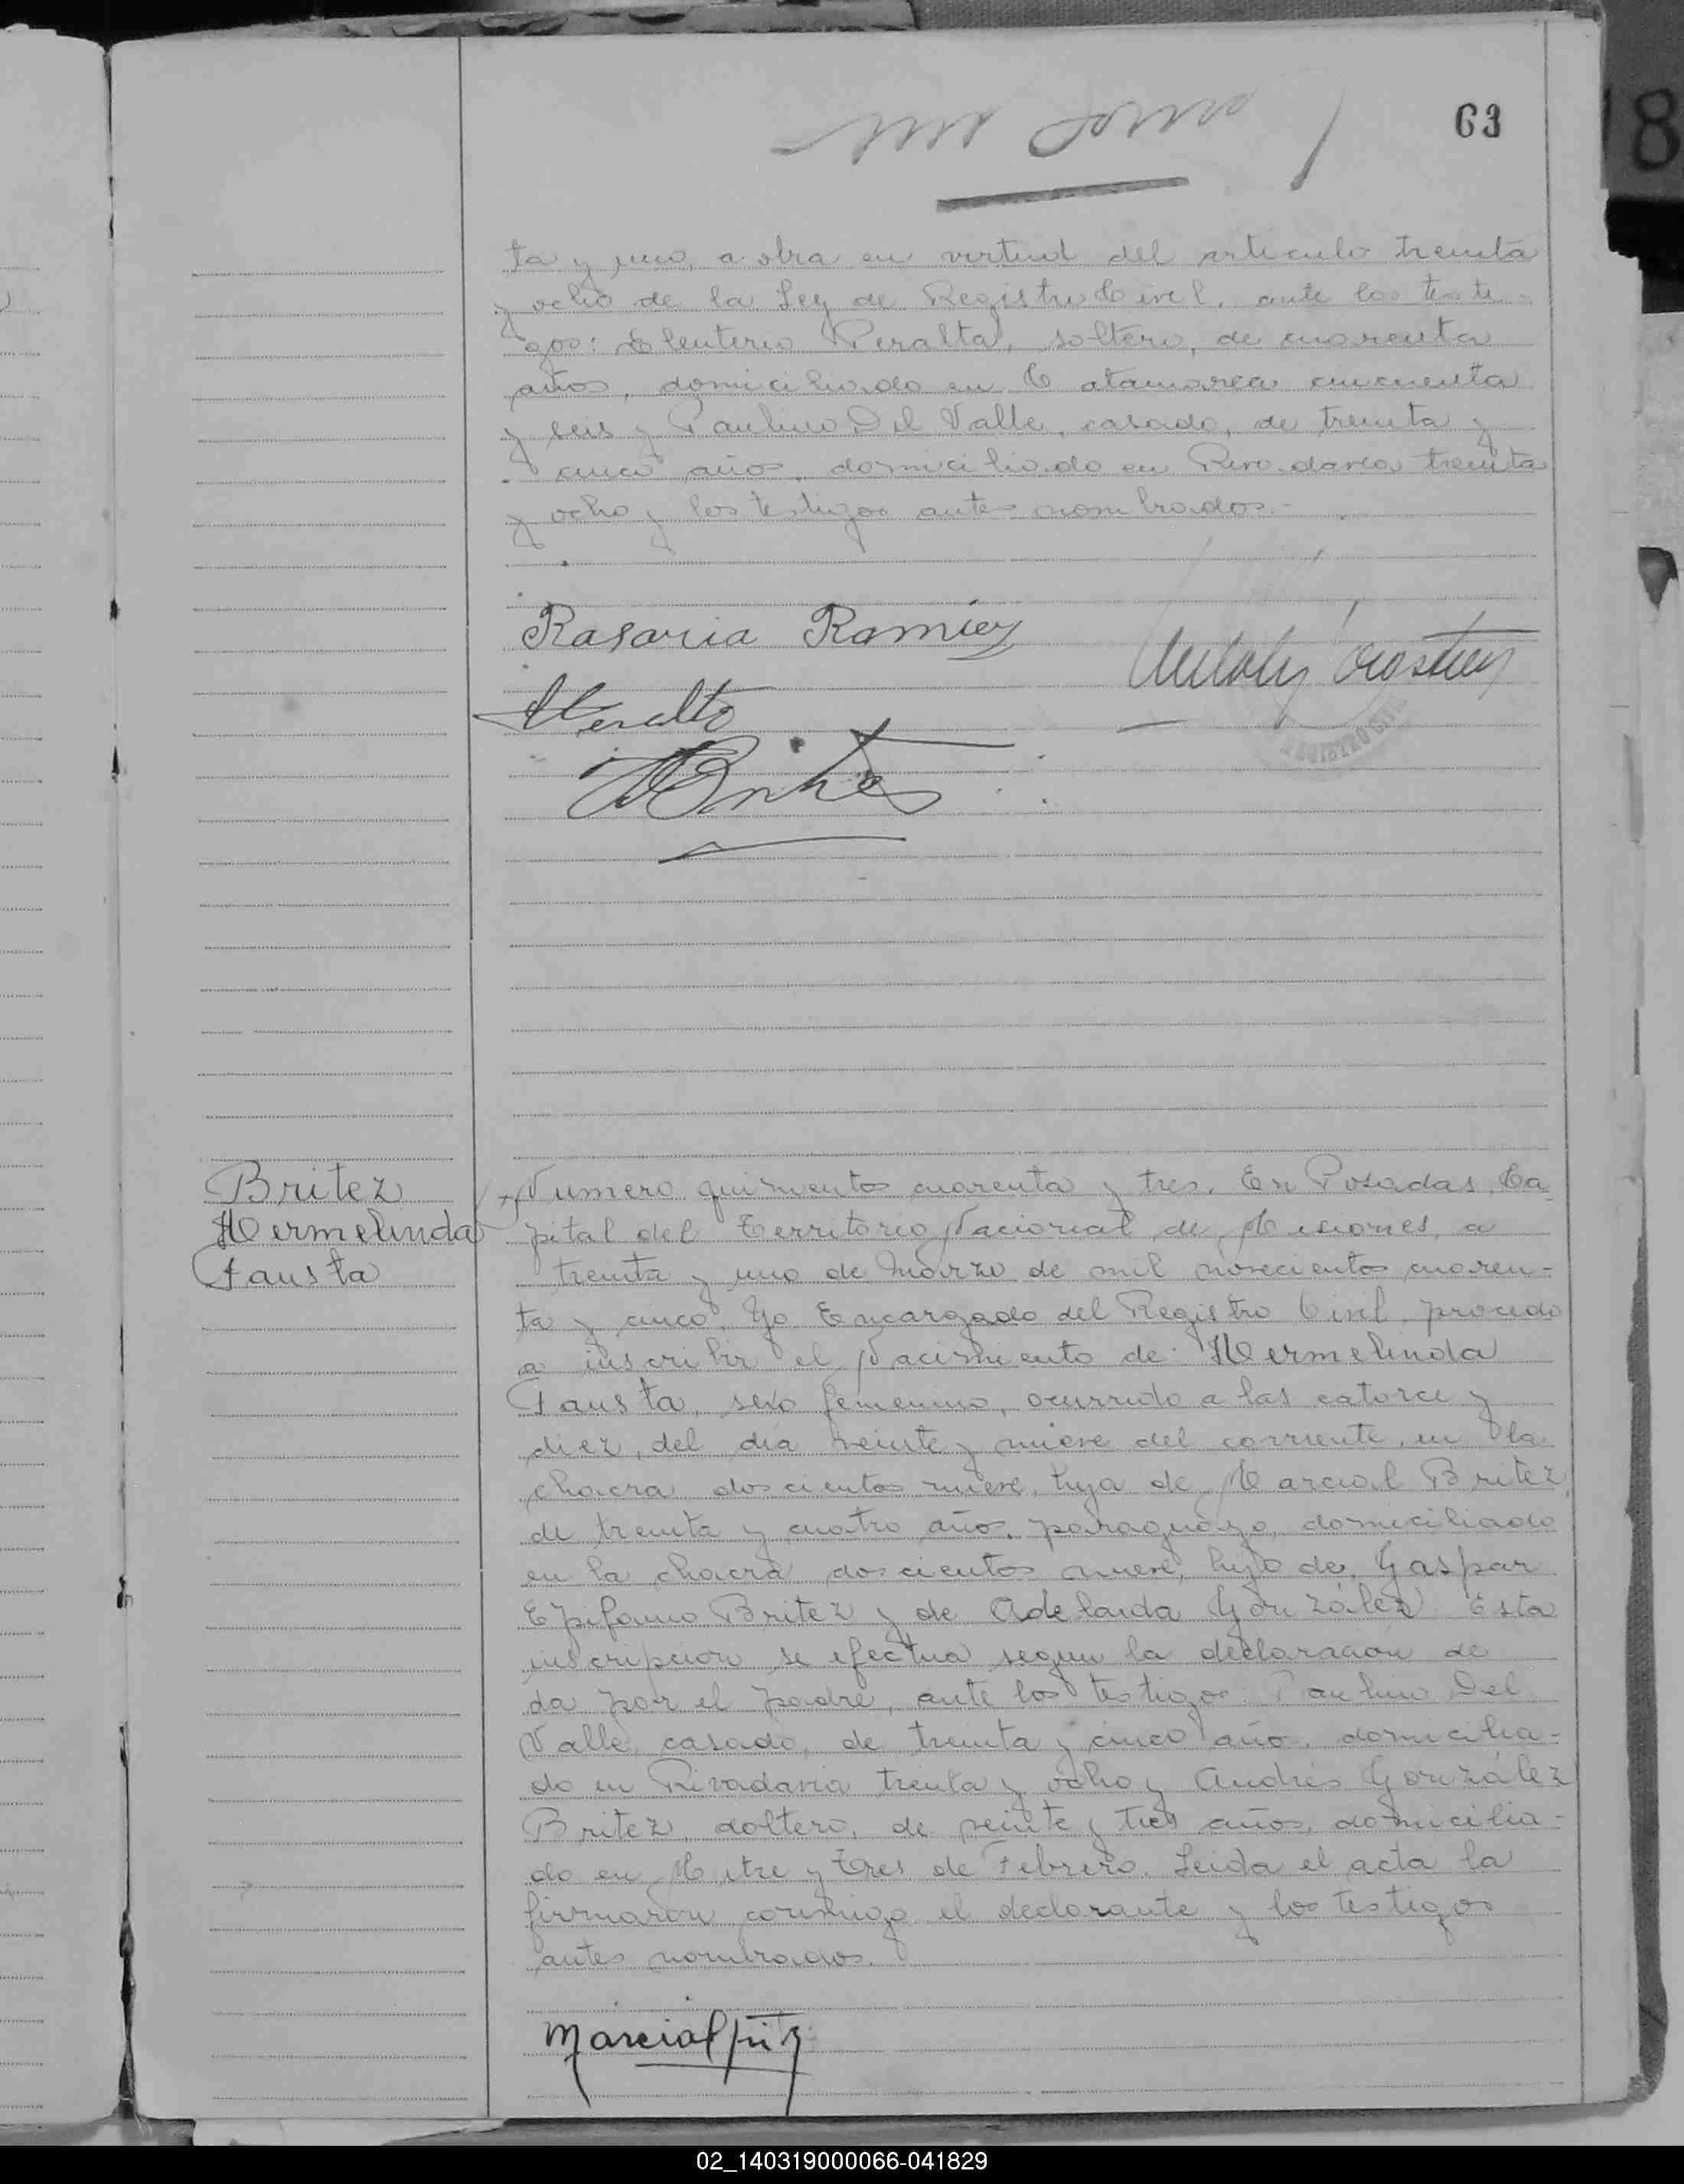 63
ta y uno, a otra en virtud del articulo treinta
y ocho de la Ley de Registro Civil, ante los testi-
gos: Eleuterio Peralta, soltero, de cuarenta
años, domiciliado en Catamarca cincuenta
y seis y Paulino Del Valle, casado, de treinta y
cinco años, domiciliado en Rivadavia treinta
y ocho y los testigos antes nombrados.-
Rasaria Ramirez
REGISTRO CIVIL
Britez
Hermelinda
Fausta
Numero quinientos cuarenta y tres. En Posadas, Ca
pital del Territorio Nacional de Misiones, a
treinta y uno de Marzo de mil novecientos cuaren-
ta y cinco. Yo Encargado del Registro Civil, procedo
a inscribir el Nacimiento de: Hermelinda
Fausta, sexo femenino, ocurrido a las catorce y
diez, del dia veinte y nueve del corriente, en la
chacra doscientos nueve, hija de Marcial Britez,
de treinta y cuatro años, paraguayo, domiciliado
en la chacra doscientos nueve, hijo de Gaspar
Epifanio Britez y de Adelaida González. Esta
inscripcion se efectua segun la declaracion de
da por el padre, ante los testigos: Paulino Del
Valle, casado, de treinta y cinco años, domicilia-
do en Rivadavia treinta y ocho y Andrés González
Britez, soltero, de veinte y tres años, domicilia-
do en Mitre y Tres de Febrero. Leida el acta la
firmaron conmigo el declarante y los testigos
antes nombrados.
Marcial Britez
02_140319000066-041829